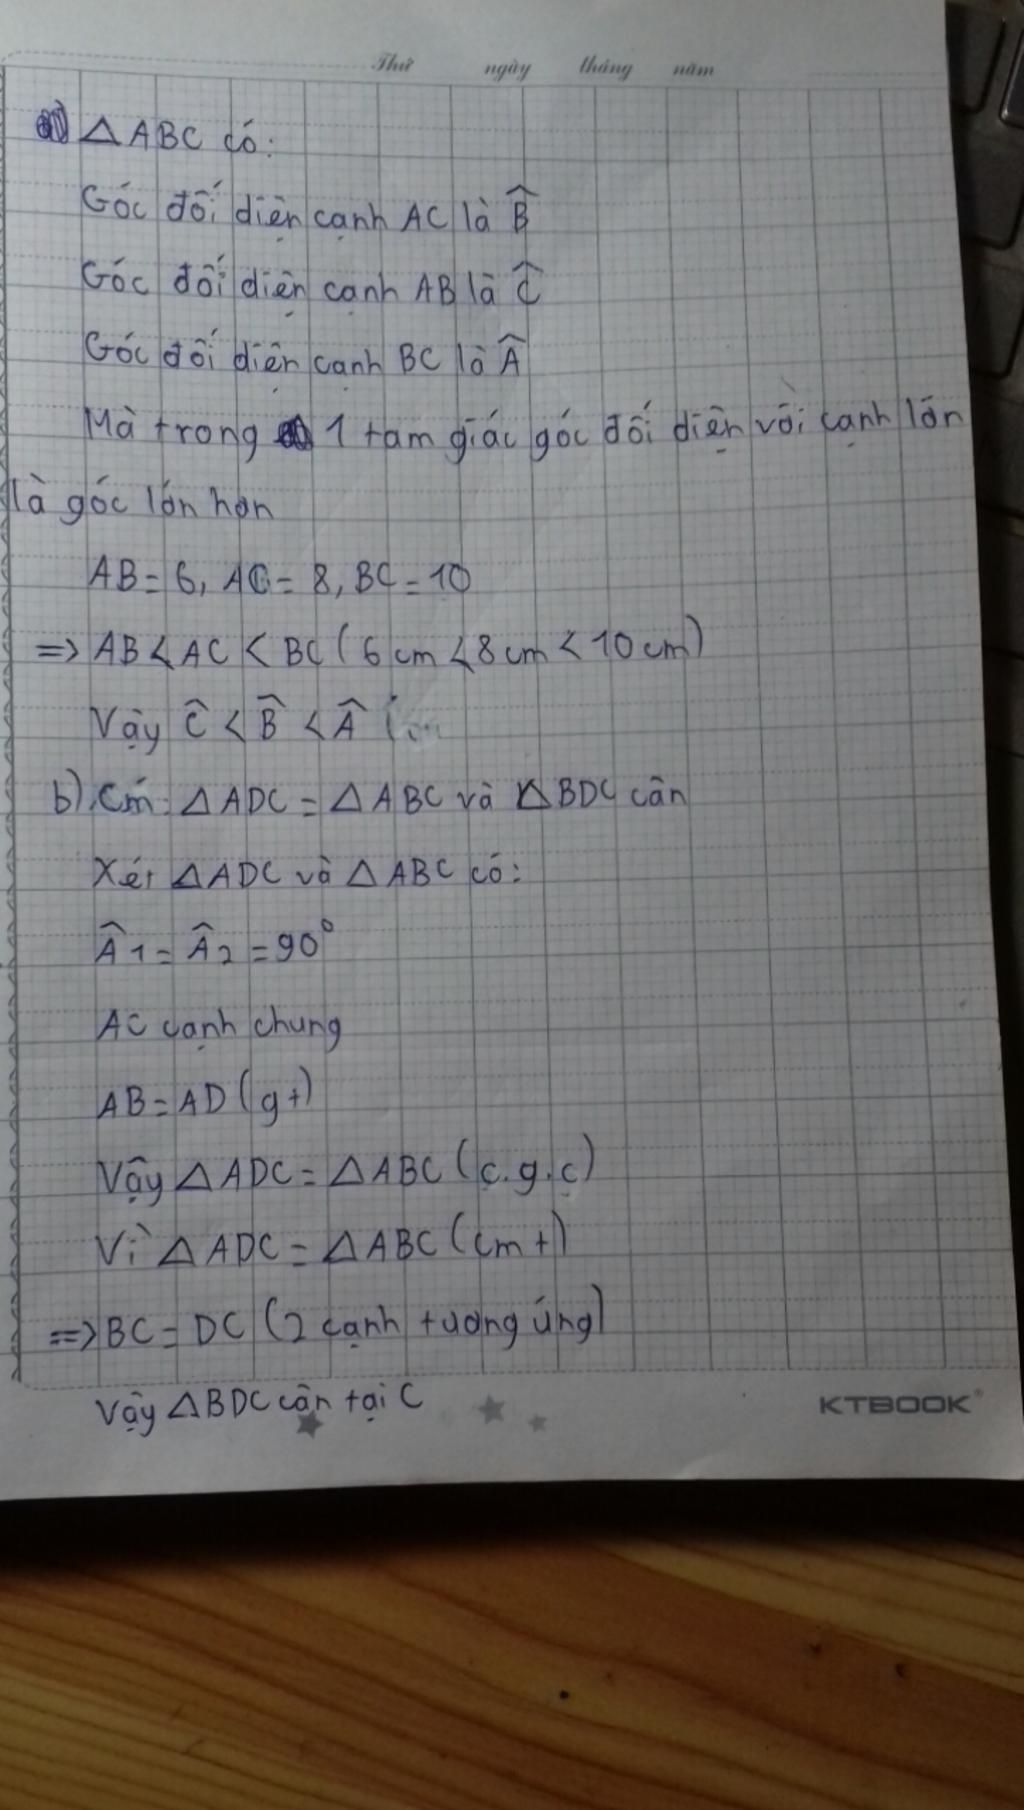 Thứ ngày tháng năm
a) △ABC có:
Góc đối diện cạnh AC là B̂
Góc đối diện cạnh AB là Ĉ
Góc đối diện cạnh BC là Â
Mà trong 1 tam giác góc đối diện với cạnh lớn
là góc lớn hơn
AB = 6, AC = 8, BC = 10
=> AB < AC < BC (6cm < 8cm < 10cm)
Vậy Ĉ < B̂ < Â
b) Cm: △ADC = △ABC và △BDC cân
Xét △ADC và △ABC có:
Â1 = Â2 = 90°
AC cạnh chung
AB = AD (gt)
Vậy △ADC = △ABC (c.g.c)
Vì △ADC = △ABC (cmt)
=> BC = DC (2 cạnh tương ứng)
Vậy △BDC cân tại C
KTBOOK